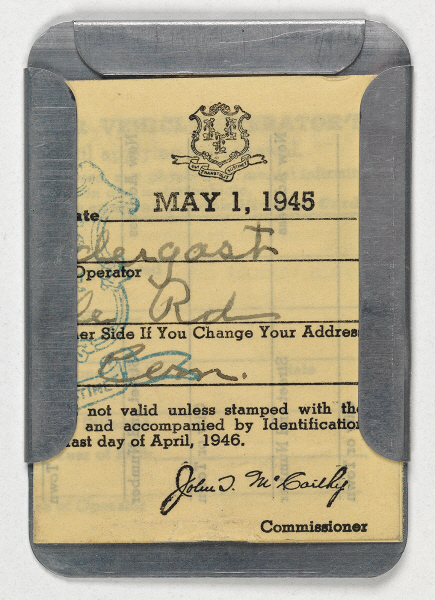 QUI TRANSTULIT SUSTINET
MAY 1, 1945
ate
dergast
Operator
le Rd
er Side If You Change Your Addres
Conn.
not valid unless stamped with the
and accompanied by Identification
last day of April, 1946.
John T. McCarthy
Commissioner